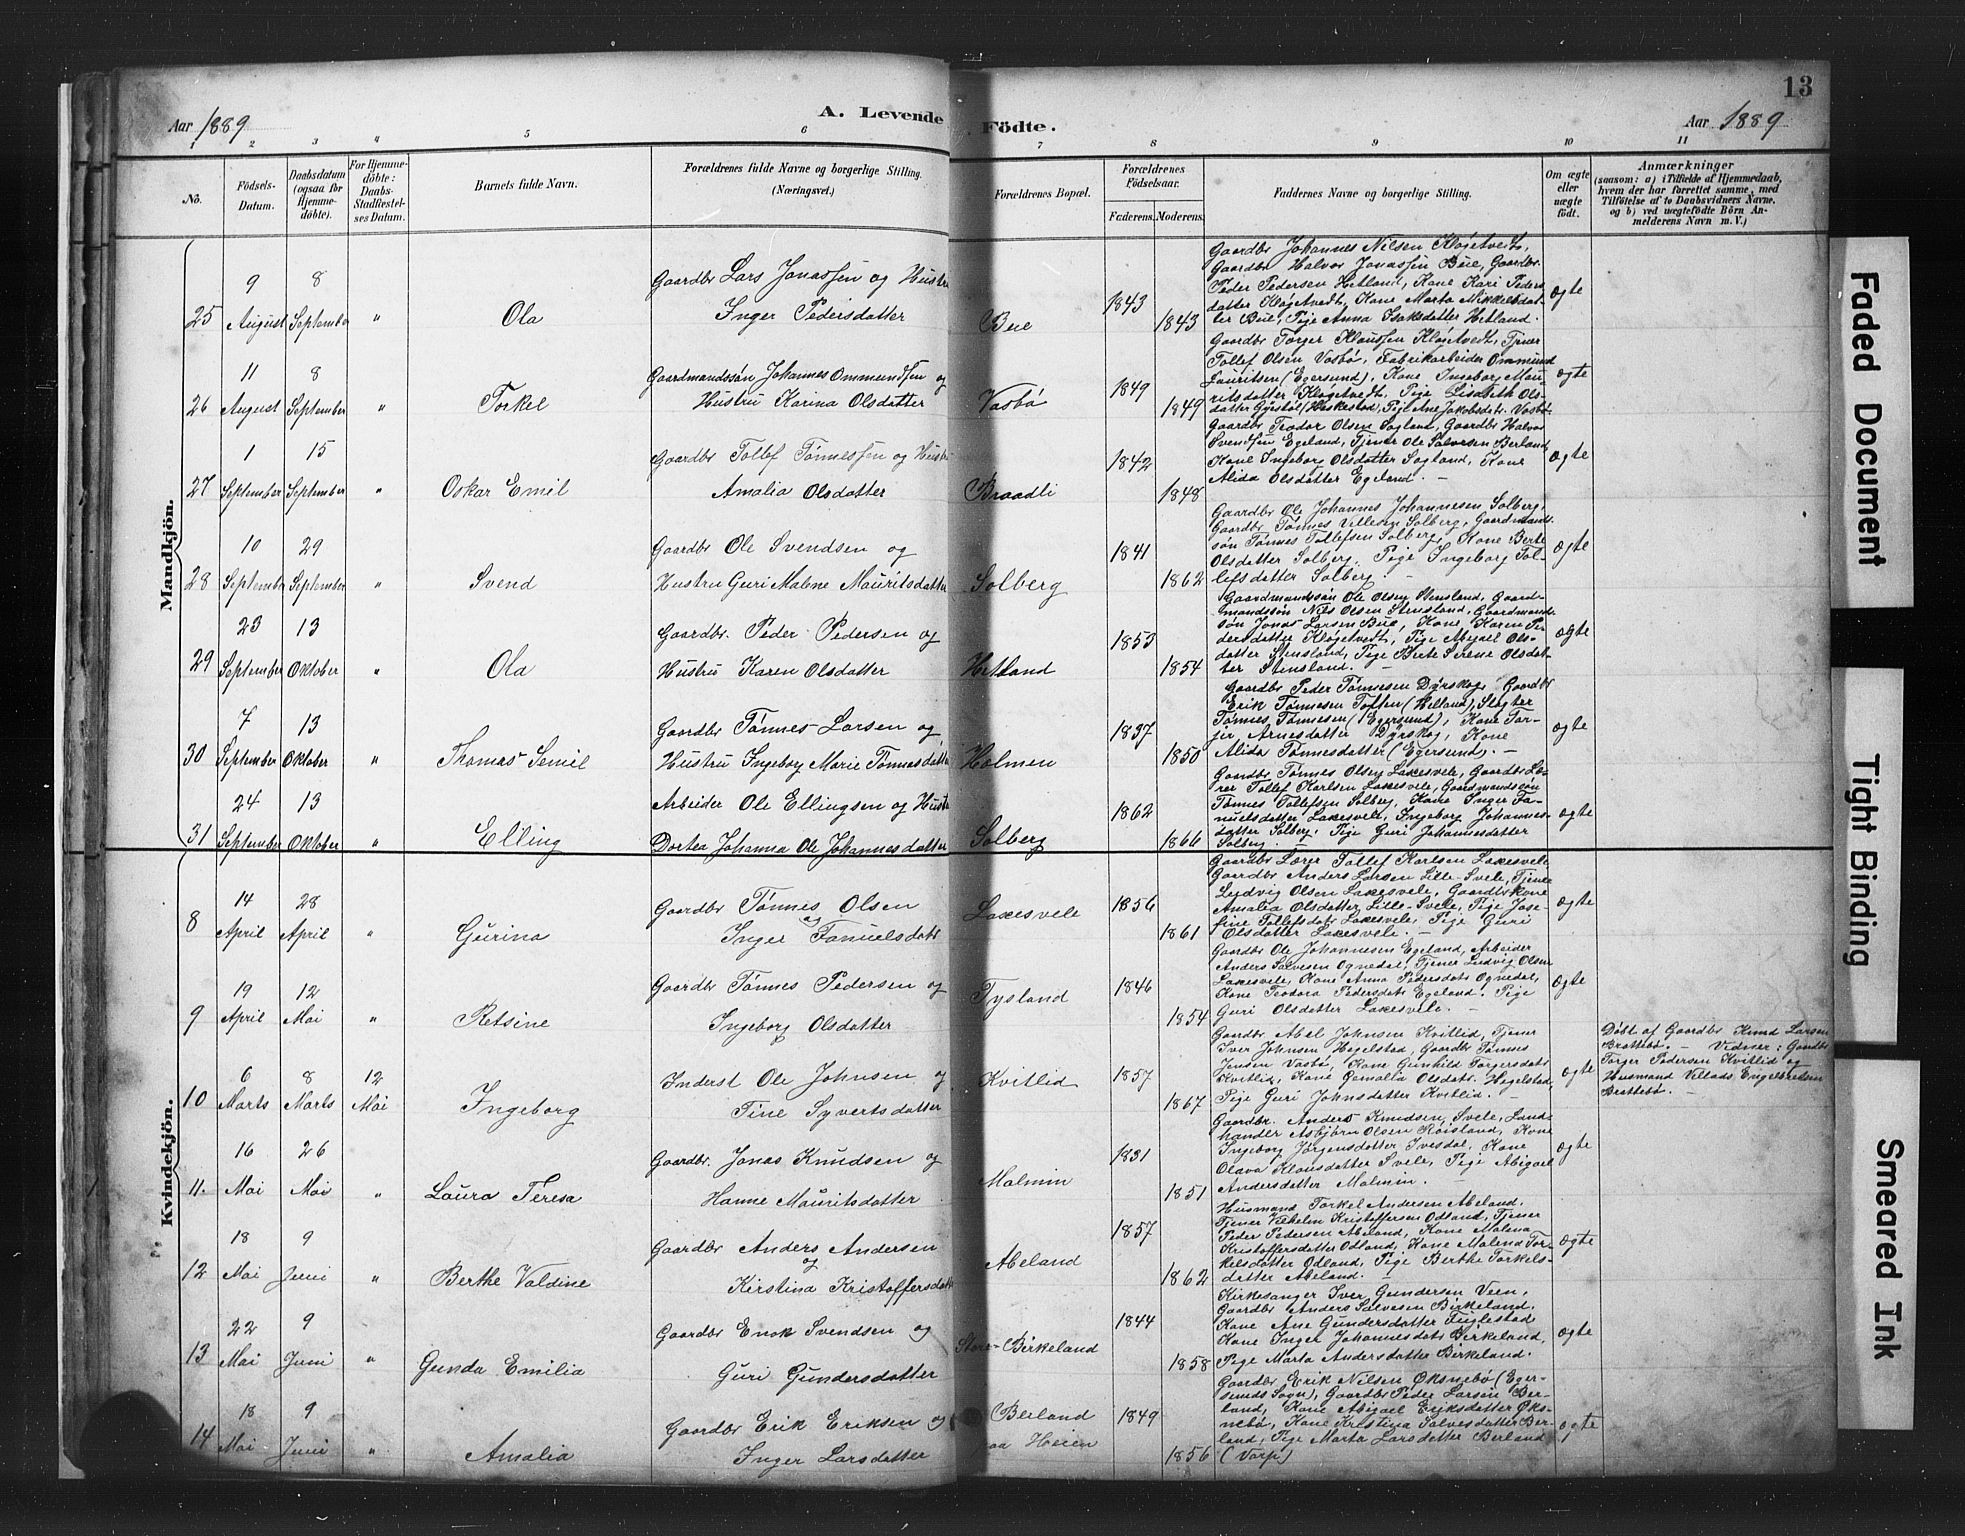 13
Aar 1889
A. Levende Födte.
Aar 1889
1 2 3 4 5 6 7 8 9 10 11
No.
Födsels-Datum.
Daabsdatum (ogsaa for Hjemme-döbte).
For Hjemme-döbte: Daabs-Stadfæstel-ses Datum.
Barnets fulde Navn.
Forældrenes fulde Navne og borgerlige Stilling. (Næringsvei.)
Forældrenes Bopæl.
Forældrenes Födselsaar.
Faderens. Moderens.
Faddernes Navne og borgerlige Stilling.
Om ægte eller uægte födt.
Anmærkninger
(saasom: a) i Tilfælde af Hjemmedaab,
hvem der har forrettet samme, med
Tilföielse af to Daabsvidners Navne,
og b) ved uægtefödte Börn An-
melderens Navn m. V.)
Mandkjön.
25 9 August 8 September " Ola
Gaardbr Lars Jonassen og Hustru
Inger Pedersdatter
Bue 1843 1843
Gaardbr Johannes Nilsen Kløgetvedt,
Gaardbr Halvor Jonassen Bue, Gaardbr.
Peder Pedersen Hetland, Kone Kari Peders-
datter Kløgetvedt, Kone Marta Mikkelsdat-
ter Bue, Pige Anna Isaksdatter Hetland.
ægte
26 11 August 8 September " Torkel
Gaardmandssøn Johannes Ommundsen og
Hustru Karina Olsdatter
Vasbø 1849 1849
Gaardbr Torger Klausen Kløgetvedt, Tjener
Tollef Olsen Vasbø, Fabrikarbeider Ommund
Lauritsen (Egersund), Kone Ingeborg Mau-
ritsdatter Kløgetvedt, Pige Lisabeth Ols-
datter Gystøl (Heskestad), Pige Ane Jakobsdatr. Vasbø
ægte
27 1 September 15 September " Oskar Emil
Gaardbr Tollef Tønnessen og Hustru
Amalia Olsdatter
Braadli 1842 1848
Gaardbr Teodor Olsen Sogland, Gaardbr Halvor
Svendsen Egeland, Tjener Ole Salvesen Berland,
Kone Ingeborg Olsdatter Sogland, Kone
Alida Olsdatter Egeland. —
ægte
28 10 September 29 September " Svend
Gaardbr Ole Svendsen og
Hustru Guri Malene Mauritsdatter
Solberg 1841 1862
Gaardbr Ole Johannes Johannesen Solberg,
Gaardbr Tønnes Villemsen Solberg, Gaardmands-
søn Tønnes Tollefsen Solberg, Kone Berte
Olsdatter Solberg, Pige Ingeborg Tol-
lefsdatter Solberg. —
ægte
29 23 September 13 Oktober " Ola
Gaardbr. Peder Pedersen og
Hustru Karen Olsdatter
Hetland 1853 1854
Gaardmandssøn Ole Olsen Stensland, Gaard-
mandssøn Nils Olsen Stensland, Gaardmands-
søn Jonas Larsen Bue, Kone Karen Pe-
dersdatter Kløgetvedt, Pige Abigael Ols-
datter Stensland, Pige Berte Serene Olsdat-
ter Stensland. —
ægte
30 7 September 13 Oktober " Thomas Semil
Gaardbr Tønnes Larsen og
Hustru Ingeborg Marie Tønnesdatter
Holmen 1837 1850
Gaardbr Peder Tønnesen Dyrskog, Gaardbr
Erik Tønnesen Toften (Helland), Slagter
Tønnes Tønnesen (Egersund), Kone Tor-
jer Arnesdatter Dyrskog, Kone
Alida Tønnesdatter (Egersund). —
ægte
31 24 September 13 Oktober " Elling
Arbeider Ole Ellingsen og Hustru
Dortea Johanna Ole Johannesdatter
Solberg 1862 1866
Gaardbr Tønnes Olsen Laksvele, Gaardbr Læ-
rer Tollef Karlsen Laksvele, Gaardmandssøn
Tønnes Tollefsen Solberg, Kone Inger Fa-
nuelsdatter Laksvele, Ingeborg Johannes-
datter Solberg, Pige Guri Johannesdatter
Solberg. —
ægte
Kvindekjön.
8 14 April 28 April " Gurina
Gaardbr Tønnes Olsen
og
Inger Fanuelsdatr
Laxesvele 1856 1861
Gaardbr Lærer Tollef Karlsen Laxesvele
Gaardbr Anders Larsen Lille-Svele, Tjener
Ludvig Olsen Laxesvele, Gaardbrkone
Amalia Olsdatter Lille-Svele, Pige Jose-
fine Tollefsdatr Laxesvele, Pige Guri
Olsdatter Laxesvele. —
ægte
9 19 April 12 Mai " Retsine
Gaardbr Tønnes Pedersen og
Ingeborg Olsdatter
Tysland 1846 1854
Gaardbr Ole Johannesen Egeland, Arbeider
Anders Salvesen Ognedal, Tjener Ludvig Olsen
Laxesvele, Kone Anna Pedersdatr Ognedal,
Kone Teodora Pedersdatr Egeland. Pige
Guri Olsdatter Laxesvele. —
ægte
10 6 Marts 8 Marts 12 Mai Ingeborg
Inderst Ole Johnsen og
Tine Syvertsdatter
Kvitlid 1857 1867
Gaardbr Abel Johnsen Kvitlid, Tjener
Iver Johnsen Hegelstad, Gaardbr Tønnes
Jensen Vasbø, Kone Gunhild Torgersdatr
Kvitlid, Kone Gemalia Olsdatr. Hegelstad,
Pige Guri Johnsdatter Kvitlid. —
ægte
Døbt af Gaardbr Knud Larsen
Brattebø. — Vidner: Gaardbr
Torger Pedersen Kvitlid og
Husmand Villads Engelbretsen
Brattebø. —
11. 16 Mai 26 Mai " Laura Teresa
Gaardbr. Jonas Knudsen og
Hanne Mauritsdatter
Malmin 1831 1851
Gaardbr. Anders Knudsen Svele, Land-
handler Asbjørn Olsen Røisland, Kone
Ingeborg Jørgensdatter Ivesdal, Kone
Olava Klausdatter Svele, Pige Abigael
Andersdatter Malmin. —
ægte
12 18 Mai 9 Juni " Berthe Valdine
Gaardbr Anders Andersen
og
Kirstina Kristoffersdatter
Abeland 1857 1862
Husmand Torkel Andersen Abeland.
Tjener Vilhelm Kristoffersen Odland, Tjener
Peder Pedersen Abeland, Kone Malena
Kristoffersdatter Odland, Kone Malena Tor-
kelsdatter Odland, Pige Berthe Torkels-
datter Abeland. —
ægte
13 22 Mai 9 Juni " Gunda Emilia
Gaardbr Enok Svendsen og
Guri Gundersdatter
Store-Birkeland 1844 1858
Kirkesanger Iver Gundersen Veen,
Gaardbr Anders Salvesen Birkeland.
Kone Ane Gundersdatter Fuglestad
Kone Inger Johannesdatr Birkeland,
Pige Marta Andersdatter Birkeland.
ægte
14 18 Mai 9 Juni " Amalia
Gaardbr Erik Eriksen og
Inger Larsdatter
Berland
paa Heien 1849 1856
Gaardbr Erik Nilsen Øksnebø (Eger-
sunds Sogn), Gaardbr Peder Larsen Ber-
land, Kone Abigael Eriksdatter Øks-
nebø, Kone Kristina Salvesdatter Ber-
land, Pige Marta Larsdatter Berland
(Varp)
ægte
Faded Document
Tight Binding
Smeared Ink